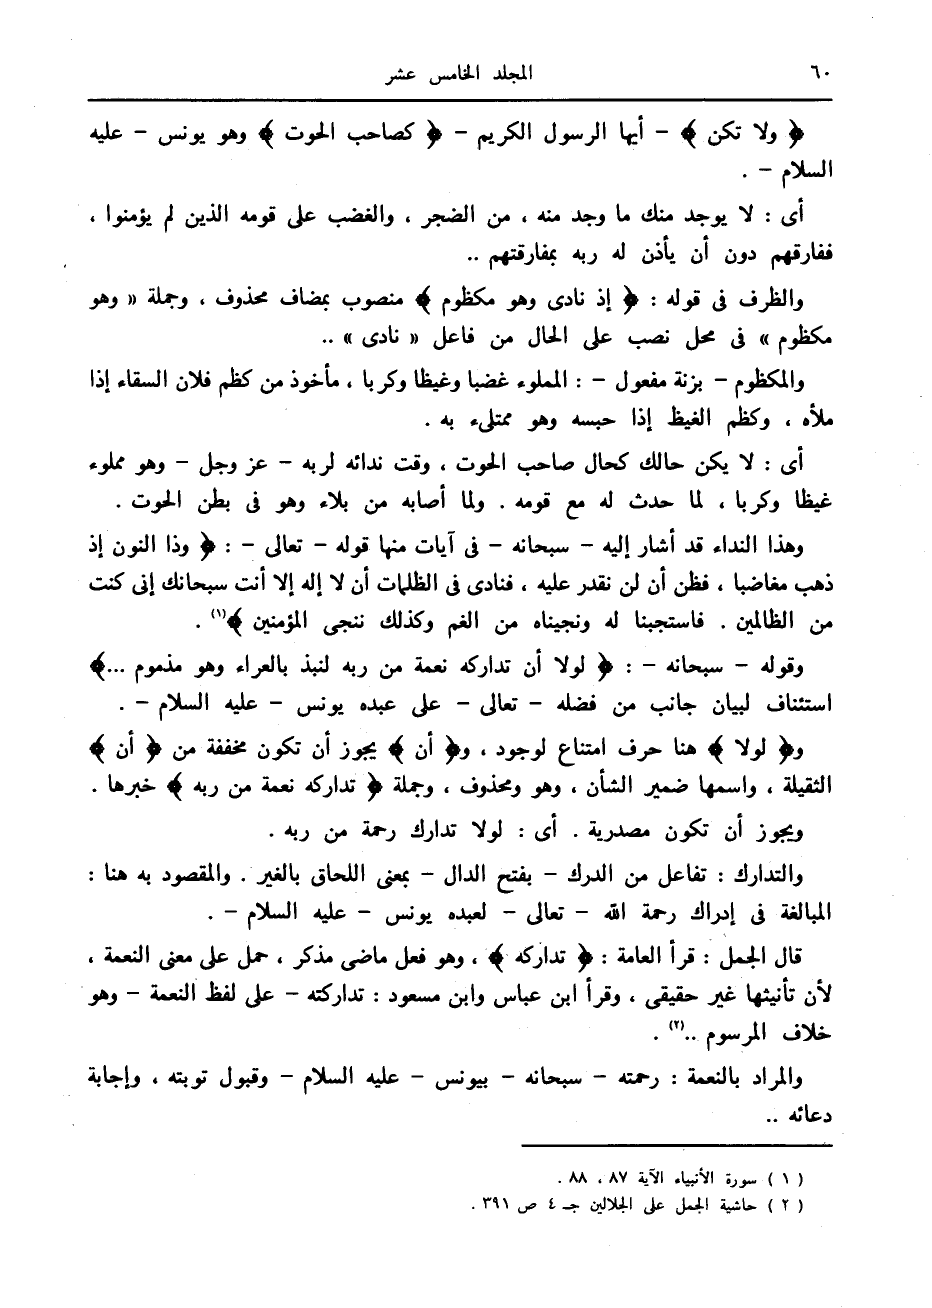 ٦٠ المجلد الخامس عشر
﴿ ولا تكن ﴾ – أيها الرسول الكريم – ﴿ كصاحب الحوت ﴾ وهو يونس – عليه
السلام – .
أى : لا يوجد منك ما وجد منه ، من الضجر ، والغضب على قومه الذين لم يؤمنوا ،
ففارقهم دون أن يأذن له ربه بمفارقتهم ..
والظرف فى قوله : ﴿ إذ نادى وهو مكظوم ﴾ منصوب بمضاف محذوف ، وجملة « وهو
مكظوم » فى محل نصب على الحال من فاعل « نادى » ..
والمكظوم – بزنة مفعول – : المملوء غضبا وغيظا وكربا ، مأخوذ من كظم فلان السقاء إذا
ملأه ، وكظم الغيظ إذا حبسه وهو ممتلىء به .
أى : لا يكن حالك كحال صاحب الحوت ، وقت ندائه لربه – عز وجل – وهو مملوء
غيظا وكربا ، لما حدث له مع قومه . ولما أصابه من بلاء وهو فى بطن الحوت .
وهذا النداء قد أشار إليه – سبحانه – فى آيات منها قوله – تعالى – : ﴿ وذا النون إذ
ذهب مغاضبا ، فظن أن لن نقدر عليه ، فنادى فى الظلمات أن لا إله إلا أنت سبحانك إنى كنت
من الظالمين . فاستجبنا له ونجيناه من الغم وكذلك ننجى المؤمنين ﴾(١) .
وقوله – سبحانه – : ﴿ لولا أن تداركه نعمة من ربه لنبذ بالعراء وهو مذموم ...﴾
استئناف لبيان جانب من فضله – تعالى – على عبده يونس – عليه السلام – .
و﴿ لولا ﴾ هنا حرف امتناع لوجود ، و﴿ أن ﴾ يجوز أن تكون مخففة من ﴿ أن ﴾
الثقيلة ، واسمها ضمير الشأن ، وهو ومحذوف ، وجملة ﴿ تداركه نعمة من ربه ﴾ خبرها .
ويجوز أن تكون مصدرية . أى : لولا تدارك رحمة من ربه .
والتدارك : تفاعل من الدرك – بفتح الدال – بمعنى اللحاق بالغير . والمقصود به هنا :
المبالغة فى إدراك رحمة الله – تعالى – لعبده يونس – عليه السلام – .
قال الجمل : قرأ العامة : ﴿ تداركه ﴾ ، وهو فعل ماضى مذكر ، حمل على معنى النعمة ،
لأن تأنيثها غير حقيقى ، وقرأ ابن عباس وابن مسعود : تداركته – على لفظ النعمة – وهو
خلاف المرسوم ..(٢) .
والمراد بالنعمة : رحمته – سبحانه – بيونس – عليه السلام – وقبول توبته ، وإجابة
دعائه ..
( ١ ) سورة الأنبياء الآية ٨٧ ، ٨٨ .
( ٢ ) حاشية الجمل على الجلالين جـ ٤ ص ٣٩١ .